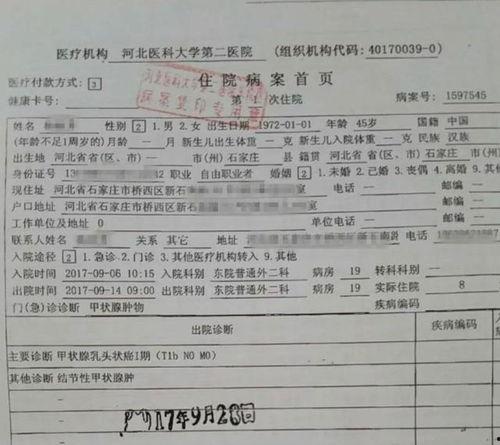 医疗机构 河北医科大学第二医院 (组织机构代码: 40170039-0)
医疗付款方式: 3 住院病案首页
健康卡号: 第1次住院 病案号: 1597545
姓名 性别 2 1.男 2.女 出生日期 1972-01-01 年龄 45岁 国籍 中国
(年龄不足1周岁的)年龄 一 月 新生儿出生体重 一 克 新生儿入院体重 一 克 民族 汉族
出生地 河北省省(区、市) 一 市(州)石家庄 县 籍贯 河北省省(区、市)石家庄 市(州)
身份证号 13 职业 自由职业者 婚姻 2 1.未婚 2.已婚 3.丧偶 4.离婚
现住址 河北省石家庄市桥西区新石 电话 一 邮编 一
户口地址 河北省石家庄市桥西区新石 邮编 一
工作单位及地址 0 单位电话 一 邮编 一
联系人姓名 关系 其它 地址 河北省石家庄市桥西区新石 电话
入院途径 2 1.急诊 2.门诊 3.其他医疗机构转入 9.其他
入院时间 2017-09-06 10:15 入院科别 东院普通外二科 病房 19 转科科别
出院时间 2017-09-14 09:00 出院科别 东院普通外二科 病房 19 实际住院 8
门(急)诊诊断 甲状腺肿物
出院诊断 疾病编码
主要诊断 甲状腺乳头状癌I期 (T1b N0 M0)
其他诊断 结节性甲状腺肿
17年9月28日